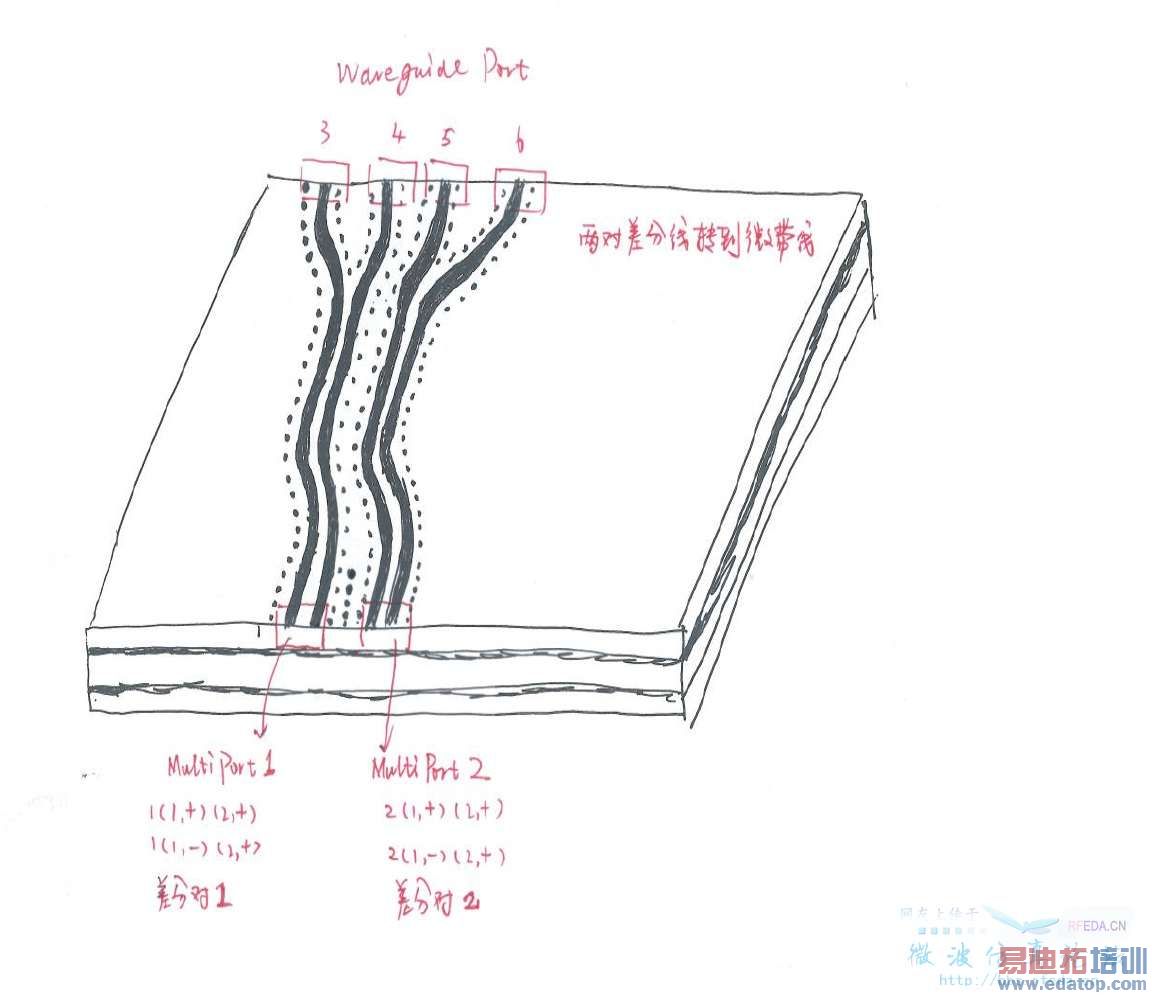 Waveguide Port
3 4 5 6
两对差分线转到微带线
Multiport 1
1(1,+)(2,+)
1(1,-)(2,+)
差分对1
Multiport 2
2(1,+)(2,+)
2(1,-)(2,+)
差分对2
网友上传于
RFEDA.CN
微波仿真
http://bbs.
易迪拓培训
www.edatop.com